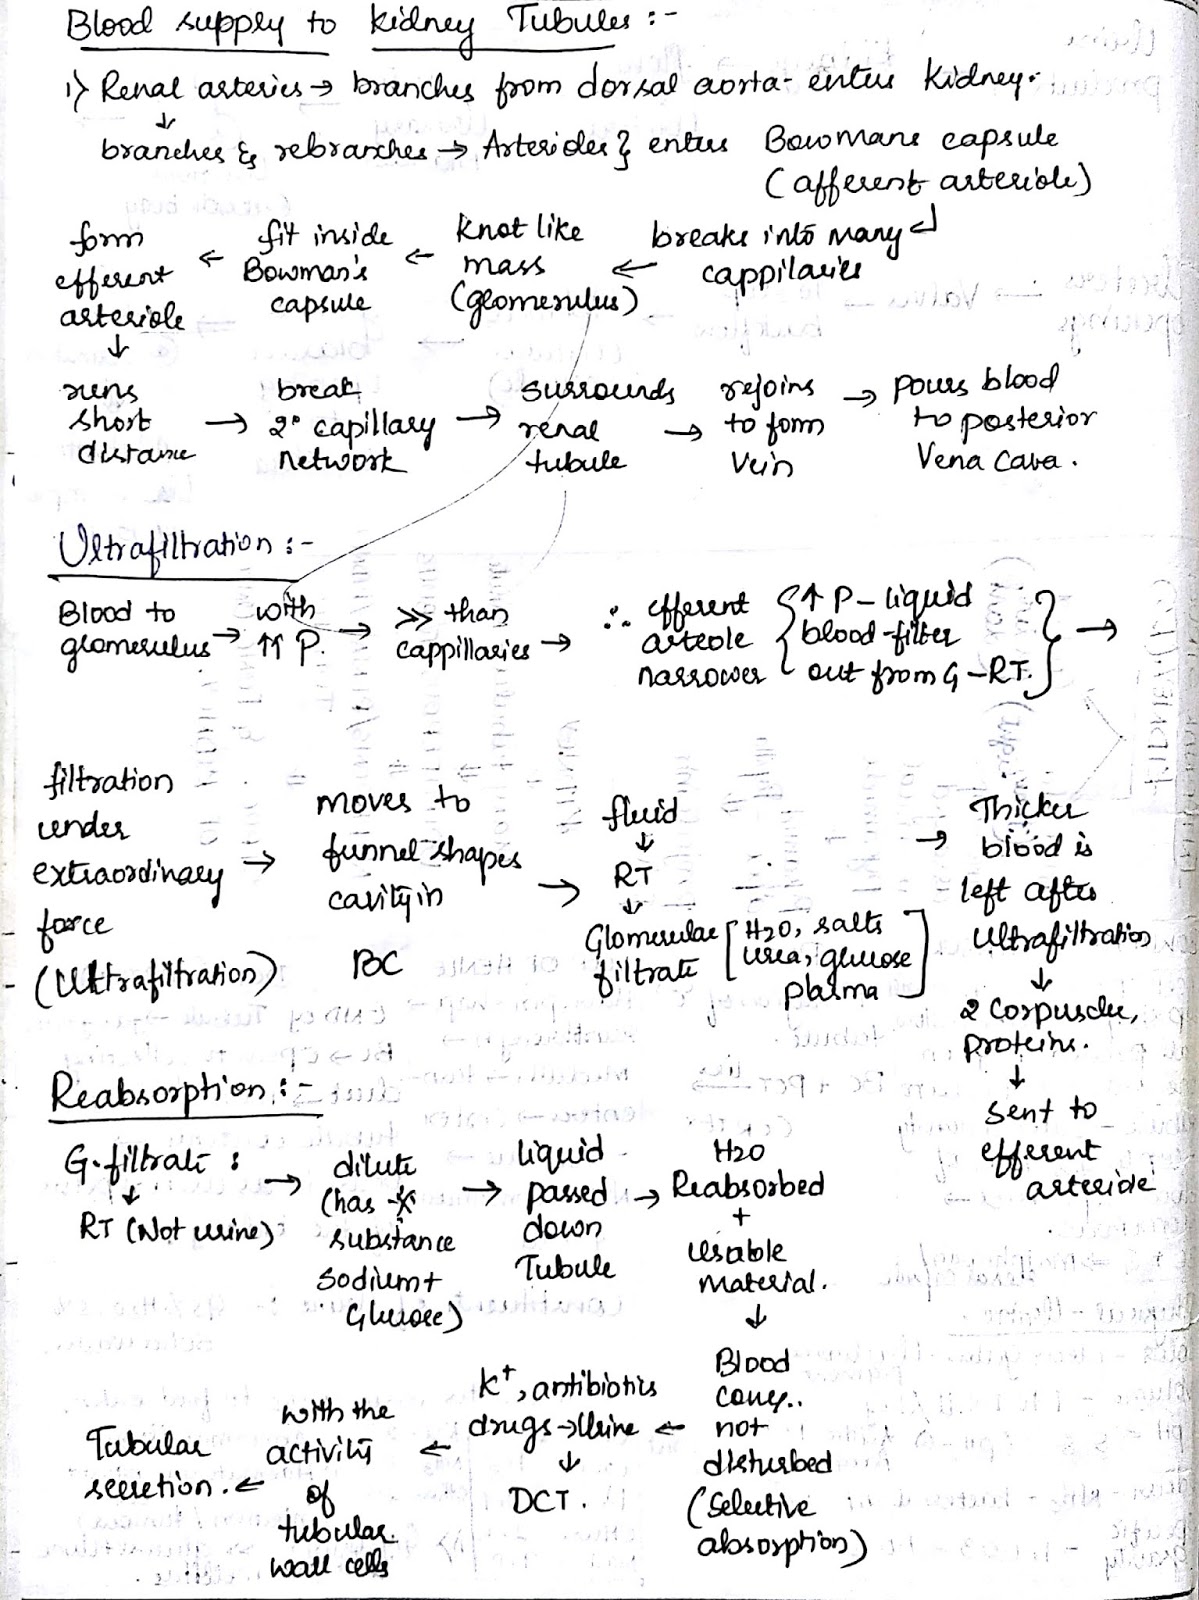 Blood supply to kidney Tubules :-
1) Renal arteries → branches from dorsal aorta- enters Kidney.
↓
branches & rebranches → Arterioles } enters Bowmans capsule
(afferent arteriole)
breaks into many
cappilaries
← knot like
mass
(glomerulus)
← fit inside
Bowman's
capsule
← form
efferent
arteriole
↓
runs
short
distance
→ break
2° capillary
network
→ surrounds
renal
tubule
→ rejoins
to form
Vein
→ pours blood
to posterior
Vena Cava.
Ultrafiltration :-
Blood to
glomerulus
→ with
↑↑ P.
→ >> than
cappillaries →
∴ efferent
arteole
narrower
{ ↑ P - liquid
blood-filter
out from G-RT. } →
filtration
under
extraordinary
force
(Ultrafiltration)
→ moves to
funnel-shapes
cavity in
BC
→ fluid
↓
RT
↓
Glomerular
filtrate
[H2O, salts
urea, glucose
plasma]
→ Thicker
blood is
left after
Ultrafiltration
↓
2 Corpuscle,
proteins.
↓
sent to
efferent
arteriole
Reabsorption :-
G. filtrate :
↓
RT (Not urine)
→ dilute
(has
substance
sodium +
Glucose)
→ liquid
passed
down
Tubule
→ H2O
Reabsorbed
+
usable
material.
↓
Blood
conc..
not
disturbed
(Selective
absorption)
← K+, antibiotics
drugs → Urine
↓
DCT.
← with the
activity
of
tubular
wall cells
← Tubular
secretion.